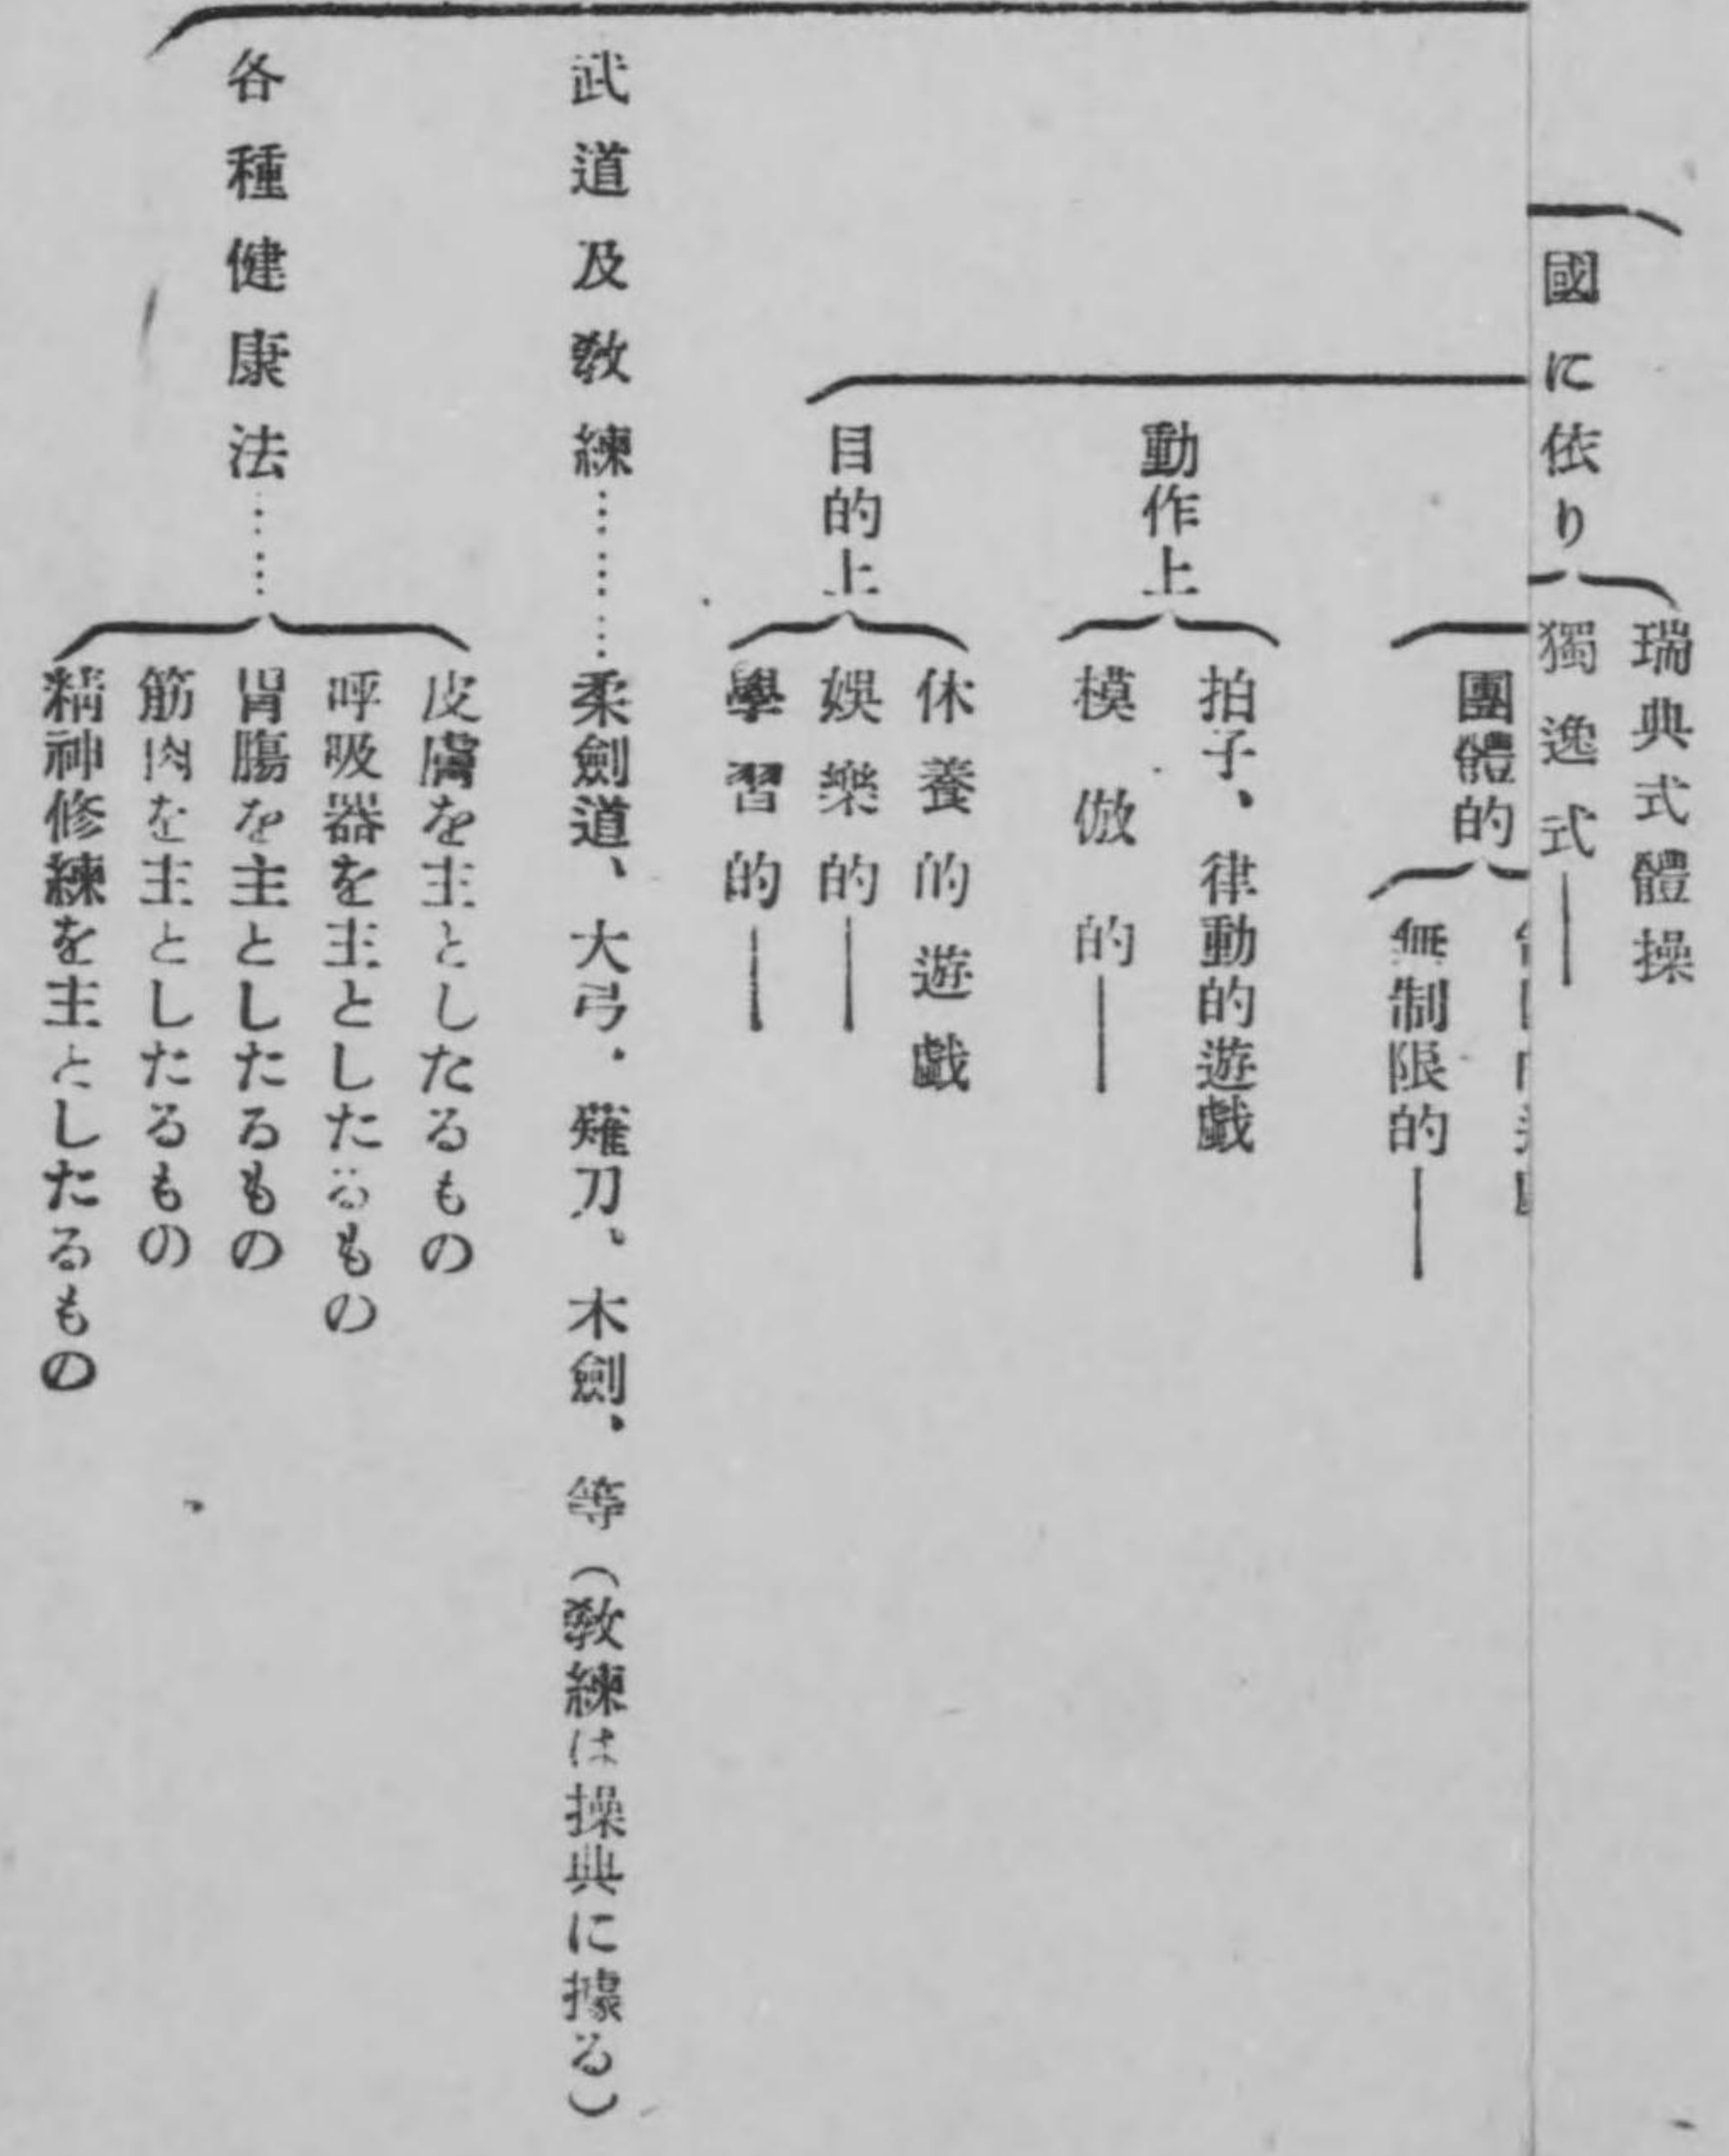 瑞典式體操
國に依り
獨逸式――
團體的
無制限的――
動作上
拍子、律動的遊戯
模倣的――
目的上
休養的遊戯
娯樂的――
學習的――
武道及敎練………柔劍道、大弓、薙刀、木劍、等(敎練は操典に據る)
各種健康法……
皮膚を主としたるもの
呼吸器を主としたるもの
胃腸を主としたるもの
筋肉を主としたるもの
精神修練を主としたるもの